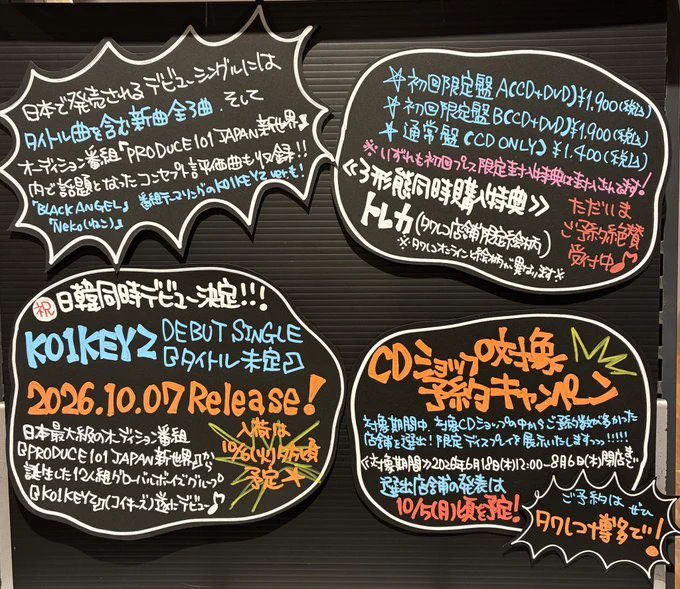 日本で発売されるデビューシングルには
タイトル曲を含む新曲全3曲、そして
オーディション番組『PRODUCE 101 JAPAN 新世界』
内で話題となったコンセプト評価曲も収録!!
『BLACK ANGEL』 番組テーマソングのKO1KEYZ ver.も!
『Neko(ねこ)』
☆初回限定盤A(CD+DVD)¥1,900(税込)
☆初回限定盤B(CD+DVD)¥1,900(税込)
☆通常盤(CD ONLY)¥1,400(税込)
※いずれも初回プレス限定封入特典は封入されます!
≪3形態同時購入特典≫
トレカ(タワレコ店舗限定絵柄)
※タワレコオンラインと絵柄が異なります※
ただいま
ご予約絶賛
受付中♪
祝 日韓同時デビュー決定!!!
KO1KEYZ DEBUT SINGLE
『タイトル未定』
2026.10.07 Release!
入荷は
10/6(火)夕方頃
予定☆
日本最大級のオーディション番組
『PRODUCE 101 JAPAN 新世界』から
誕生した12人組グローバルボーイズグループ
『KO1KEYZ』(コイキーズ)遂にデビュー♪
CDショップの対象
予約キャンペーン
対象期間中、対象CDショップの中からご予約数が多かった
店舗を選出!限定ディスプレイを展示いたしますっっ!!!!!
≪対象期間≫2026年6月18日(木)12:00~8月6日(木)閉店まで
選出店舗の発表は
10/5(月)頃を予定!
ご予約は ぜひ
タワレコ博多で!